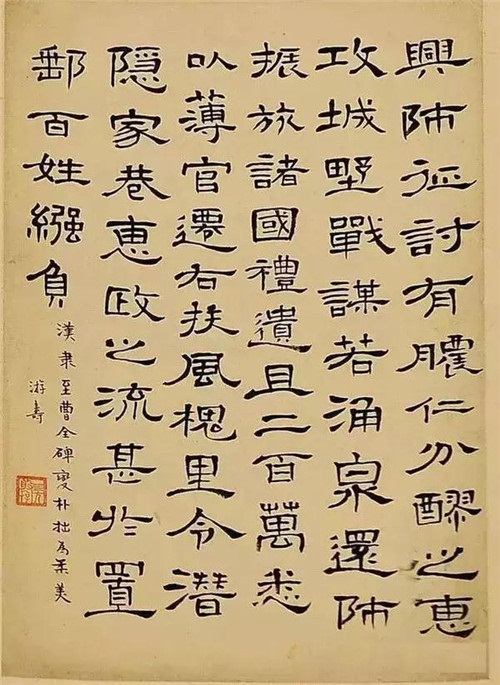 興師征討有膿仁分醪之惠
攻城野戰謀若涌泉還師
振旅諸國禮遺且二百萬悉
以薄官遷右扶風槐里令潛
隱家巷惠政之流甚於置
郵百姓繈負
漢隸至曹全碑變朴拙為柔美
游壽